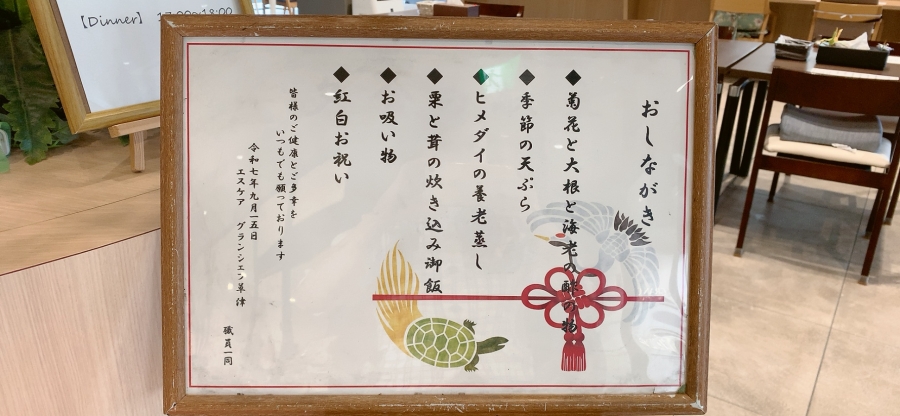 おしながき
◆菊花と大根と海老の酢の物
◆季節の天ぷら
◆ヒメダイの養老蒸し
◆栗と茸の炊き込み御飯
◆お吸い物
◆紅白お祝い
皆様のご健康とご多幸を
いつもでも願っております
令和七年九月一五日
エスケア グランシェン草津
職員一同
【Dinner】 17:00~18:00